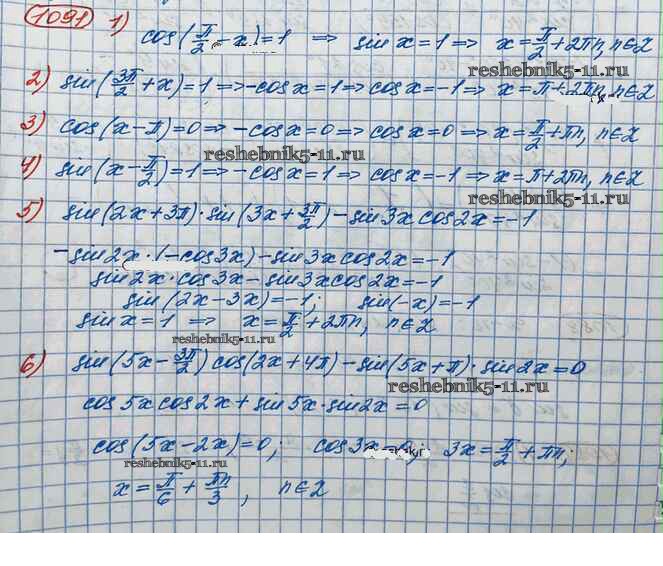 1091 1) cos(π/2 - x) = 1 ⇒ sin x = 1 ⇒ x = π/2 + 2πn, n∈Z
reshebnik5-11.ru
2) sin(3π/2 + x) = 1 ⇒ -cos x = 1 ⇒ cos x = -1 ⇒ x = π + 2πn, n∈Z
3) cos(x - π) = 0 ⇒ -cos x = 0 ⇒ cos x = 0 ⇒ x = π/2 + πn, n∈Z
reshebnik5-11.ru
4) sin(x - π/2) = 1 ⇒ -cos x = 1 ⇒ cos x = -1 ⇒ x = π + 2πn, n∈Z
reshebnik5-11.ru
5) sin(2x + 3π) · sin(3x + 3π/2) - sin 3x cos 2x = -1
- sin 2x · (-cos 3x) - sin 3x cos 2x = -1
reshebnik5-11.ru
sin 2x · cos 3x - sin 3x cos 2x = -1
sin (2x - 3x) = -1; sin(-x) = -1
sin x = 1 ⇒ x = π/2 + 2πn, n∈Z
reshebnik5-11.ru
6) sin(5x - 3π/2) cos(2x + 4π) - sin(5x + π) · sin 2x = 0
reshebnik5-11.ru
cos 5x cos 2x + sin 5x · sin 2x = 0
cos(5x - 2x) = 0; cos 3x = 0; 3x = π/2 + πn;
reshebnik5-11.ru
x = π/6 + πn/3, n∈Z